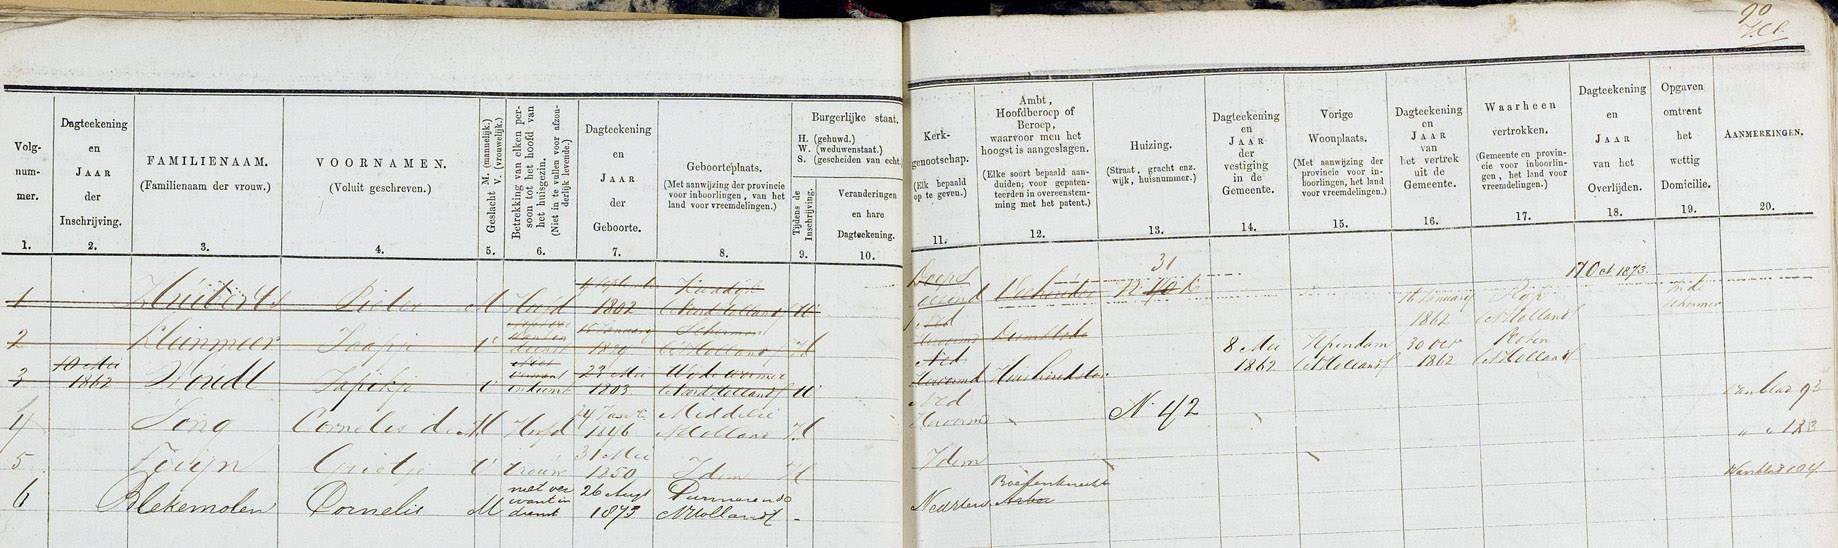 90
Volg-
num-
mer.
1.
Dagteekening
en
JAAR
der
Inschrijving.
2.
FAMILIENAAM.
(Familienaam der vrouw.)
3.
VOORNAMEN.
(Voluit geschreven.)
4.
Geslacht M. (mannelijk.)
V. (vrouwelijk.)
5.
Betrekking van elken per-
soon tot het hoofd van
het huisgezin.
(Niet in te vullen voor afzon-
derlijk levende.)
6.
Dagteekening
en
JAAR
der
Geboorte.
7.
Geboorteplaats.
(Met aanwijzing der provincie
voor inboorlingen, van het
land voor vreemdelingen.)
8.
Burgerlijke staat.
H. (gehuwd.)
W. (weduwenstaat.)
S. (gescheiden van echt.)
Tijdens de
Inschrijving.
9.
Veranderingen
en hare
Dagteekening.
10.
Kerk-
genootschap.
(Elk bepaald
op te geven.)
11.
Ambt,
Hoofdberoep of
Beroep,
waarvoor men het
hoogst is aangeslagen.
(Elke soort bepaald aan-
duiden; voor gepaten-
teerden in overeenstem-
ming met het patent.)
12.
Huizing.
(Straat, gracht enz.
wijk, huisnummer.)
13.
Dagteekening
en
JAAR
der
vestiging
in de
Gemeente.
14.
Vorige
Woonplaats.
(Met aanwijzing der
provincie voor in-
boorlingen, het land
voor vreemdelingen.)
15.
Dagteekening
en
JAAR
van
het vertrek
uit de
Gemeente.
16.
Waarheen
vertrokken.
(Gemeente en provin-
cie voor inboorlin-
gen, het land voor
vreemdelingen.)
17.
Dagteekening
en
JAAR
van het
Overlijden.
18.
Opgaven
omtrent
het
wettig
Domicilie.
19.
AANMERKINGEN.
20.
1 Huiberts Pieter M Hoofd 1802 Noord Holland W
Doops
gezind Veehouder 31
17 Oct 1873
2 Kleinmeer Jaapje V 15 January Schermer N Holland H
Ned
Hervormd Dienstbode 16 January
1862 N Holland
3 10 Mei
1862 Woudt V 22 Mei
1803 Noord Holland W
Ned
Hervormd Huishoudster 8 Mei
1862 Ilpendam
N Holland 30 Oct
1862 N Holland
4 Jong Cornelis de M Hoofd 1846 Middelie
N Holland H
Ned
Hervormd N 42 Van blad 93
5 Grietje V vrouw 31 Mei
1850 Idem H
Idem " " 123
6 Blekemolen Cornelis M niet ver
want in
dienst 26 Aug
1873 Purmerende
N Holland -
Nederl Boerenknecht